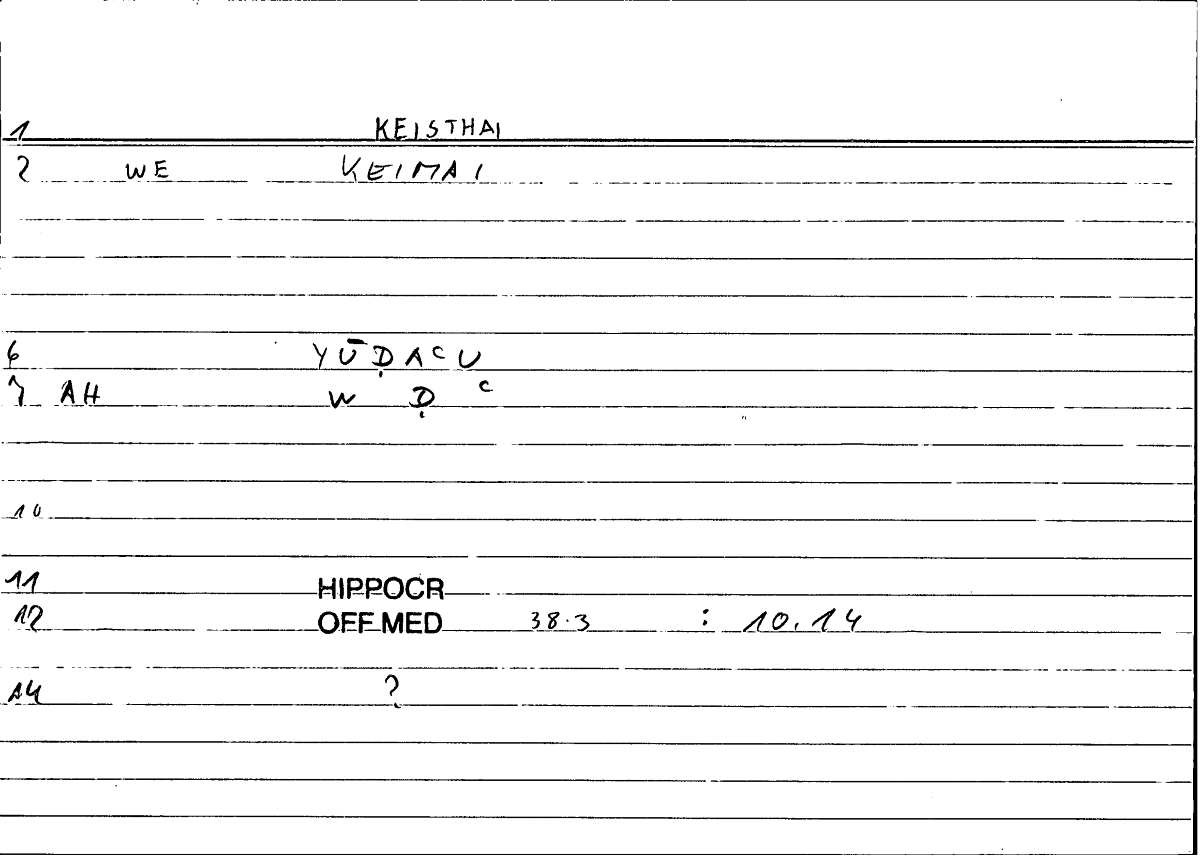 1 KEISTHAI
2 WE KEIMAI
6 YŪḌAᶜU
7 AH W Ḍ ᶜ
10
11 HIPPOCR
12 OFF MED 38.3 : 10.14
14 ?